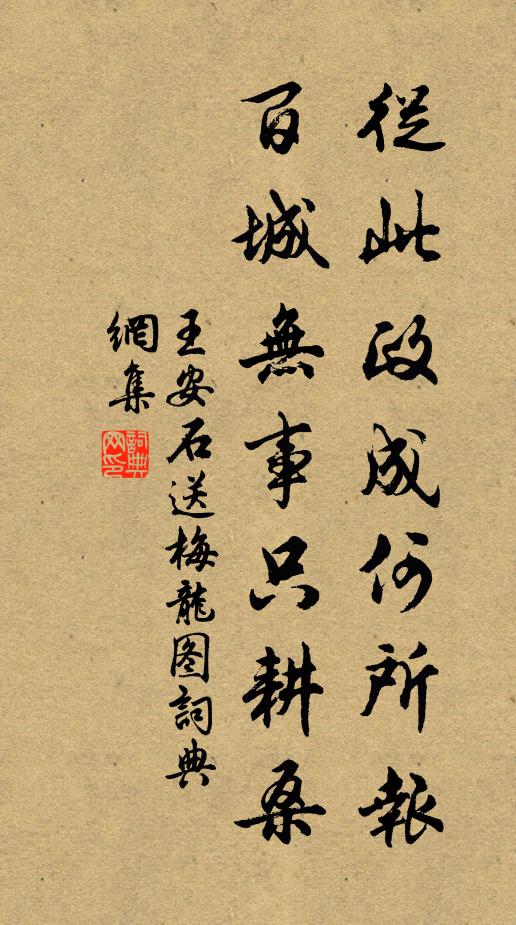 從此政成何所報
百城無事只耕桑
王安石送梅龍图詞典
網集
詞典
网印